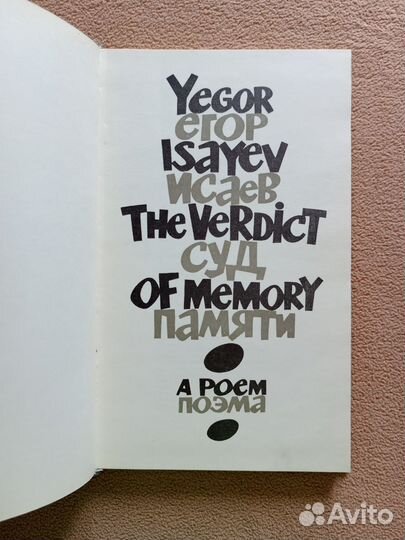 Yegor
Егор
Isayev
Исаев
The Verdict
Суд
of Memory
Памяти
A Poem
Поэма
Avito